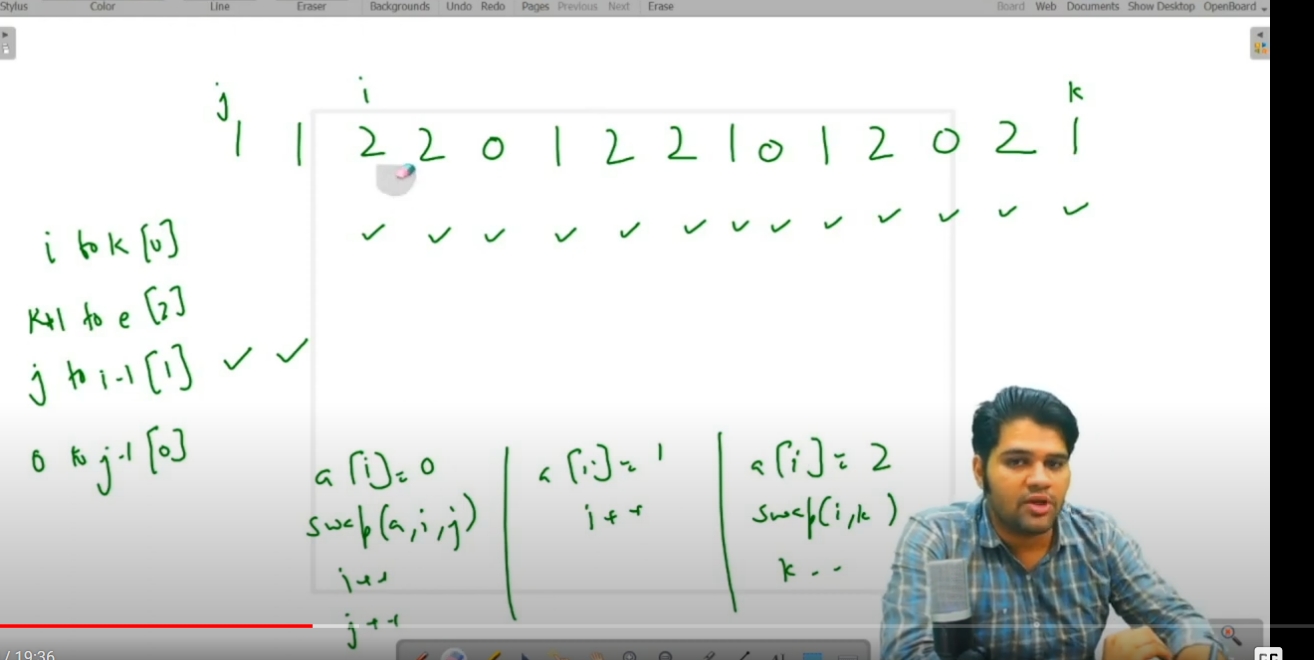 Stylus Color Line Eraser Backgrounds Undo Redo Pages Previous Next Erase Board Web Documents Show Desktop OpenBoard
j i k
1 1 2 2 0 1 2 2 1 0 1 2 0 2 1
i to k [0]
k+1 to e [2]
j to i-1 [1]
0 to j-1 [0]
a[i]=0 a[i]=1 a[i]=2
swap(a,i,j) i++ swap(i,k)
i++ k--
j++
/ 19:36